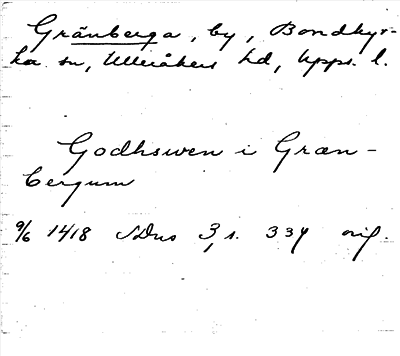 Gränberga, by, Bondkyr-
ka sn, Ulleråkers hd, Upps. l.
Godhswen i Græn-
bergum
9/6 1418 SDns 3, s. 339 orig.